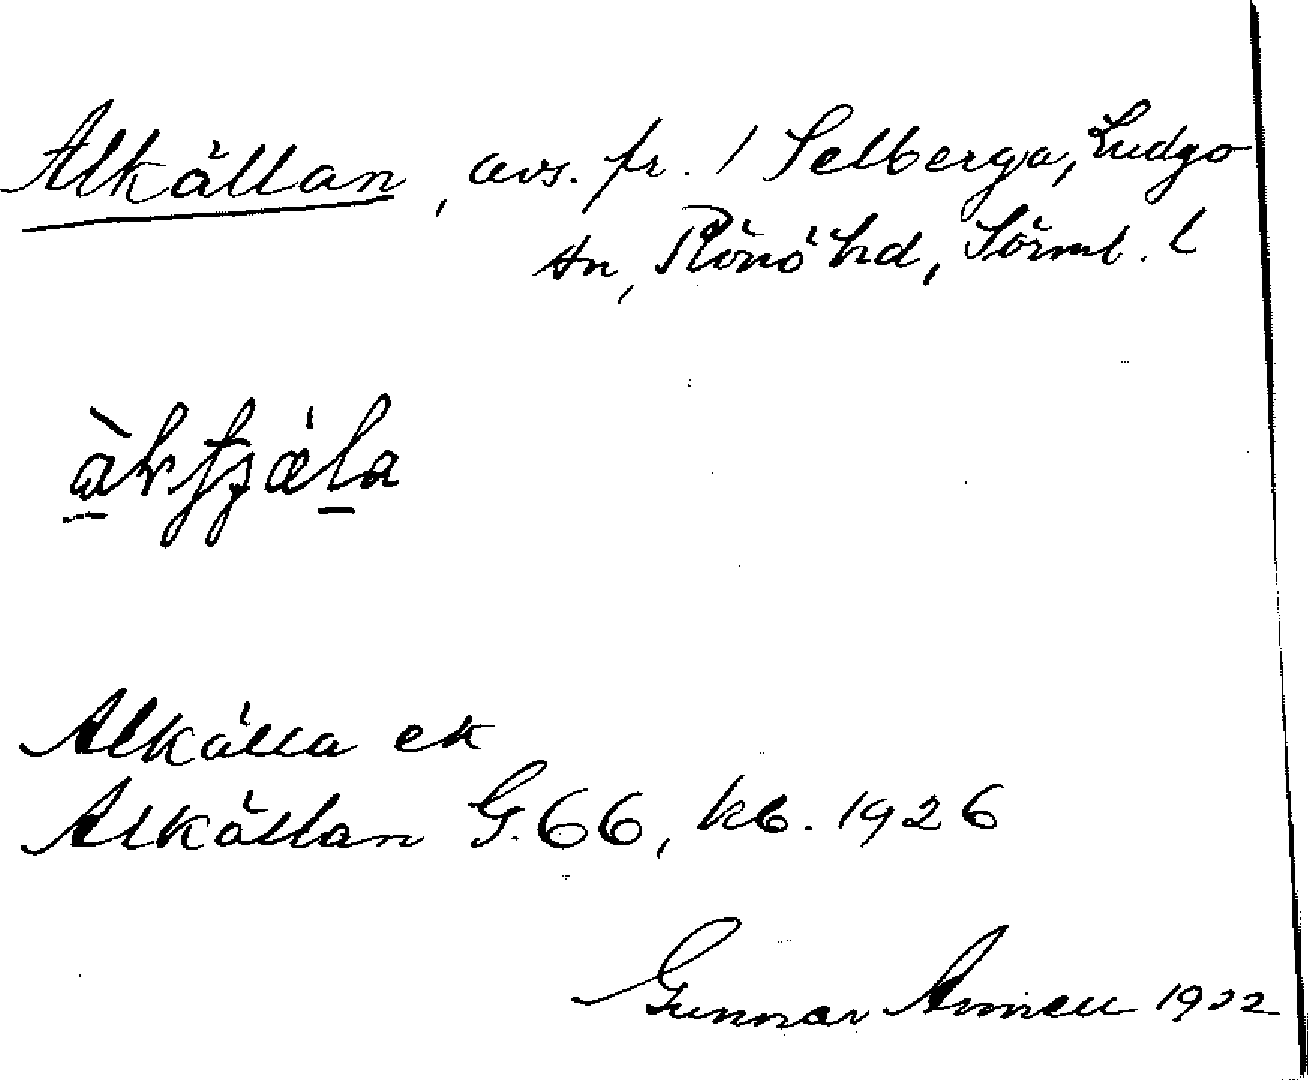 Alkällan, avs. fr. / Selberga, Ludgo
sn, Rönö hd, Sörml. l
Alkälla ek
Alkällan G.66, kb. 1926
Gunnar